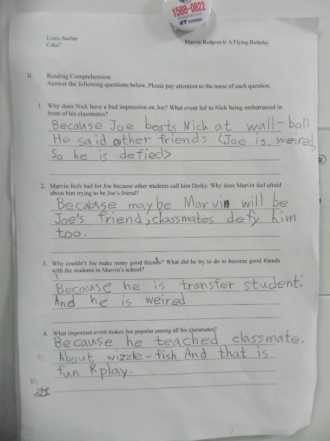 1588-0822
Louis Sachar
Cake?
Marvin Redpost 6: A Flying Birthday
II. Reading Comprehension
Answer the following questions below. Please pay attention to the tense of each question.
1. Why does Nick have a bad impression on Joe? What event led to Nick being embarrassed in
front of his classmates?
Because Joe beats Nich at wall-ball
He said other friends (Joe is weired,
So he is defied>
2. Marvin feels bad for Joe because other students call him Dusky. Why does Marvin feel afraid
about him trying to be Joe's friend?
Because maybe Marvin will be
Joe's friend, classmates defy him
too.
3. Why couldn't Joe make many good friends? What did he try to do to become good friends
with the students in Marvin's school?
Because he is transfer student.
And he is weired
4. What important event makes Joe popular among all his classmates?
Because he teached classmate.
About wizzle-fish And that is
fun Rplay.